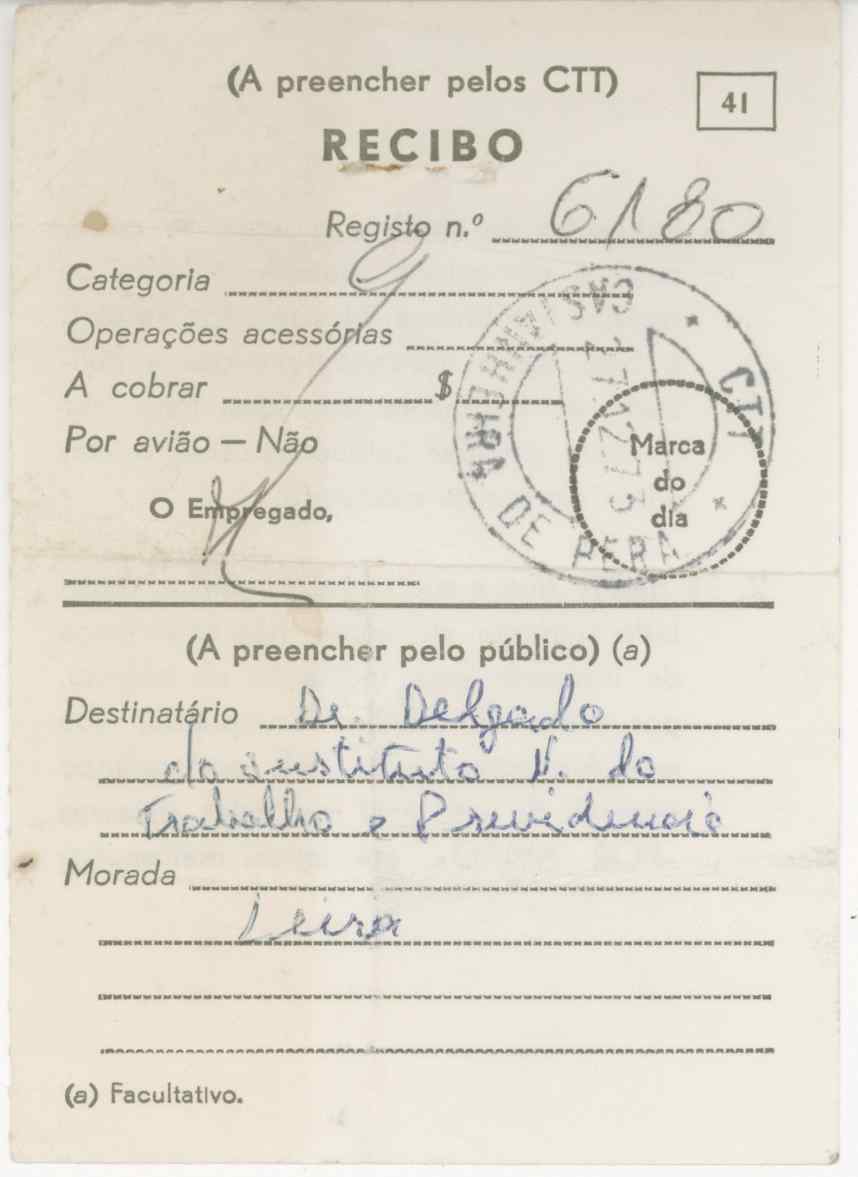 (A preencher pelos CTT)
41
RECIBO
Registo n.º 6180
Categoria
Operações acessórias
A cobrar $
Por avião — Não
CASTANHEIRA DE PERA * CTT *
17.12.73
Marca
do
dia
O Empregado,
(A preencher pelo público) (a)
Destinatário Dr. Delgado
do Instituto N. do
Trabalho e Previdencia
Morada
Leiria
(a) Facultativo.